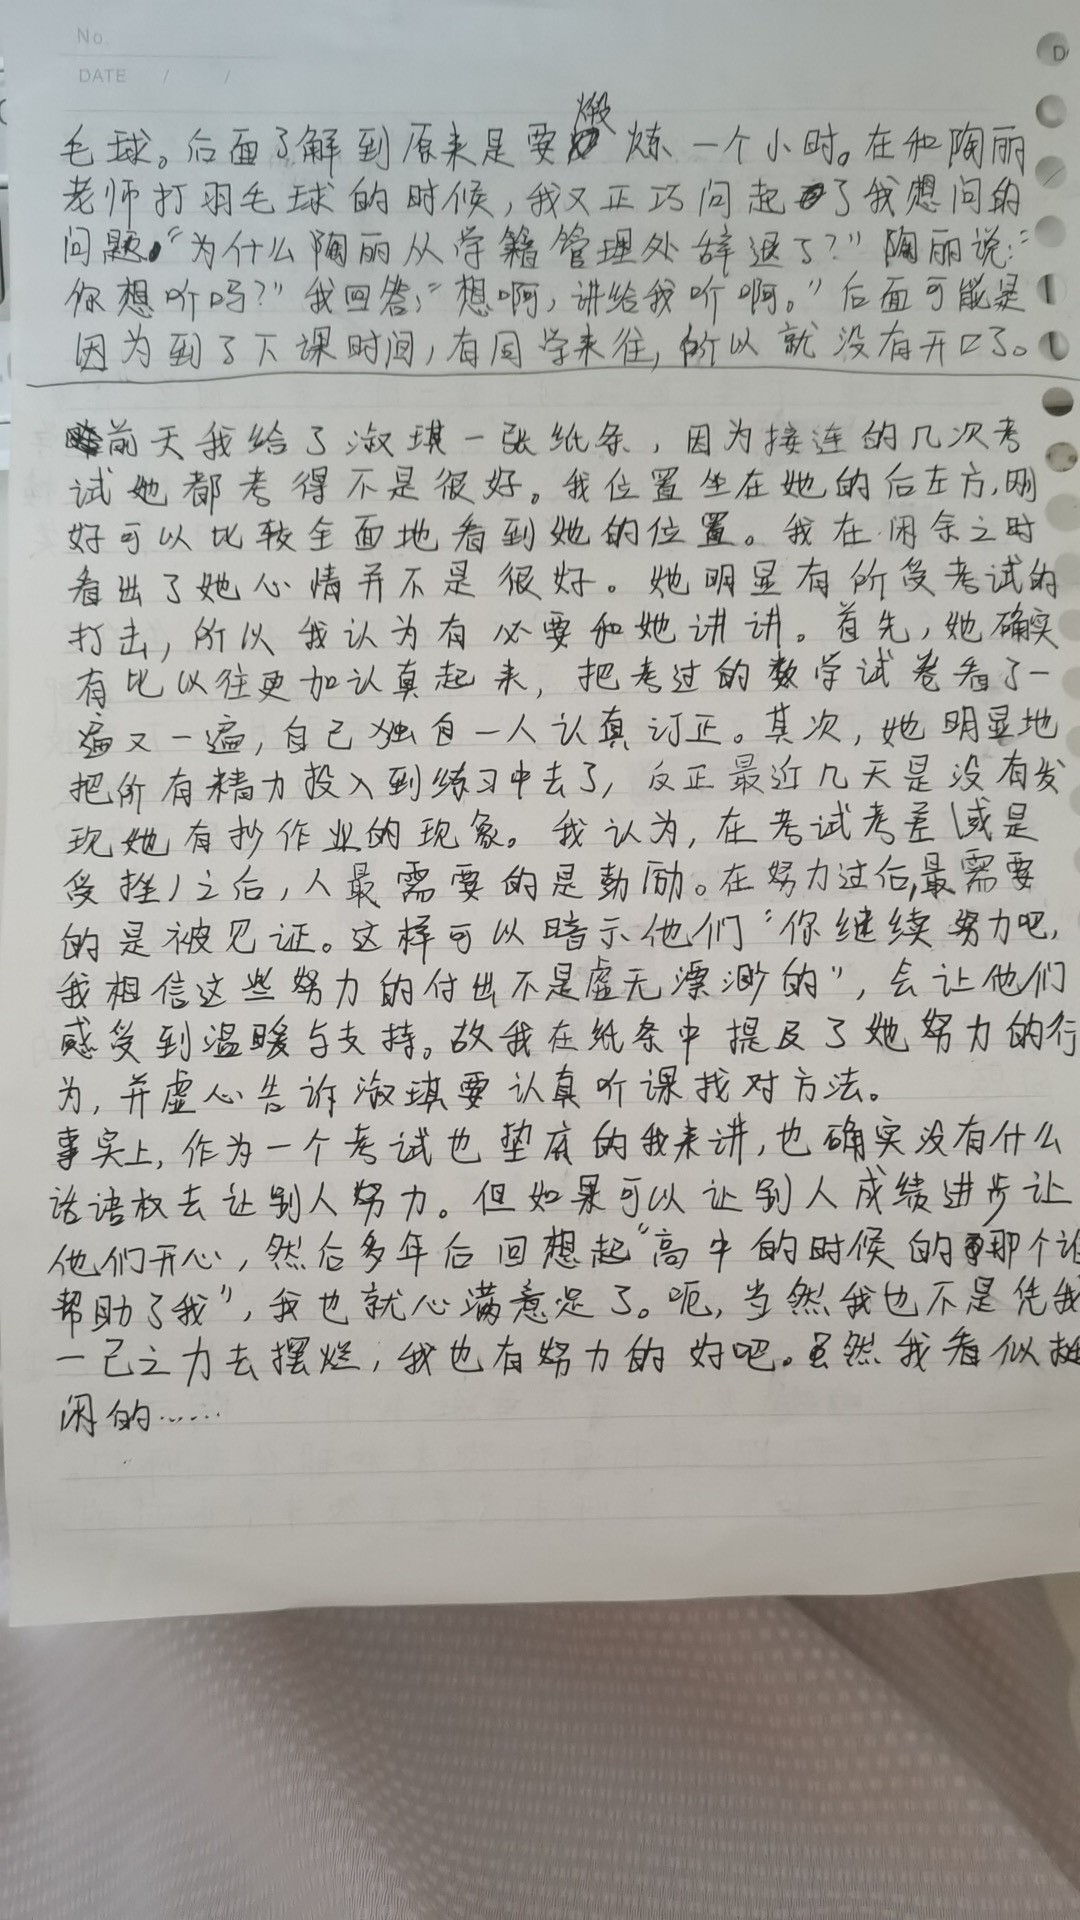 No.
DATE / /
毛球。后面了解到原来是要煅炼一个小时。在和陶丽
老师打羽毛球的时候，我又正巧问起了我想问的
问题。“为什么陶丽从学籍管理处辞退了？”陶丽说：“
你想听吗？”我回答：“想啊，讲给我听啊。”后面可能是
因为到了下课时间，有同学来往，所以就没有开口了。
前天我给了淑琪一张纸条，因为接连的几次考
试她都考得不是很好。我位置坐在她的后左方，刚
好可以比较全面地看到她的位置。我在闲余之时
看出了她心情并不是很好。她明显有所受考试的
打击，所以我认为有必要和她讲讲。首先，她确实
有比以往更加认真起来，把考过的数学试卷看了一
遍又一遍，自己独自一人认真订正。其次，她明显地
把所有精力投入到练习中去了，反正最近几天是没有发
现她有抄作业的现象。我认为，在考试考差（或是
受挫）之后，人最需要的是勉励。在努力过后，最需要
的是被见证。这样可以暗示他们“你继续努力吧，
我相信这些努力的付出不是虚无漂渺的”，会让他们
感受到温暖与支持。故我在纸条中提及了她努力的行
为，并虚心告诉淑琪要认真听课找对方法。
事实上，作为一个考试也垫底的我来讲，也确实没有什么
话语权去让别人努力。但如果可以让别人成绩进步让
他们开心，然后多年后回想起“高中的时候的那个谁
帮助了我”，我也就心满意足了。呃，当然我也不是凭我
一己之力去摆烂，我也有努力的好吧。虽然我看似挺
闲的……